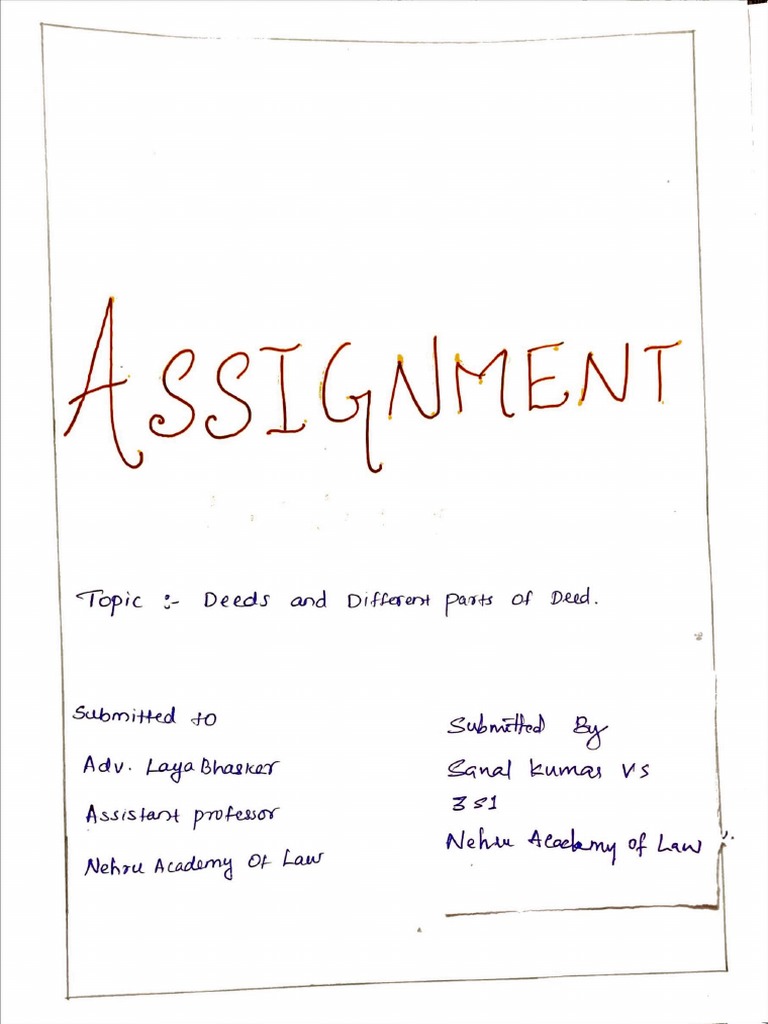 ASSIGNMENT
Topic :- Deeds and Different parts of Deed.
Submitted to
Adv. Laya Bhasker
Assistant professor
Nehru Academy Of Law
Submitted By
Sanal kumar V S
3 S1
Nehru Academy of Law